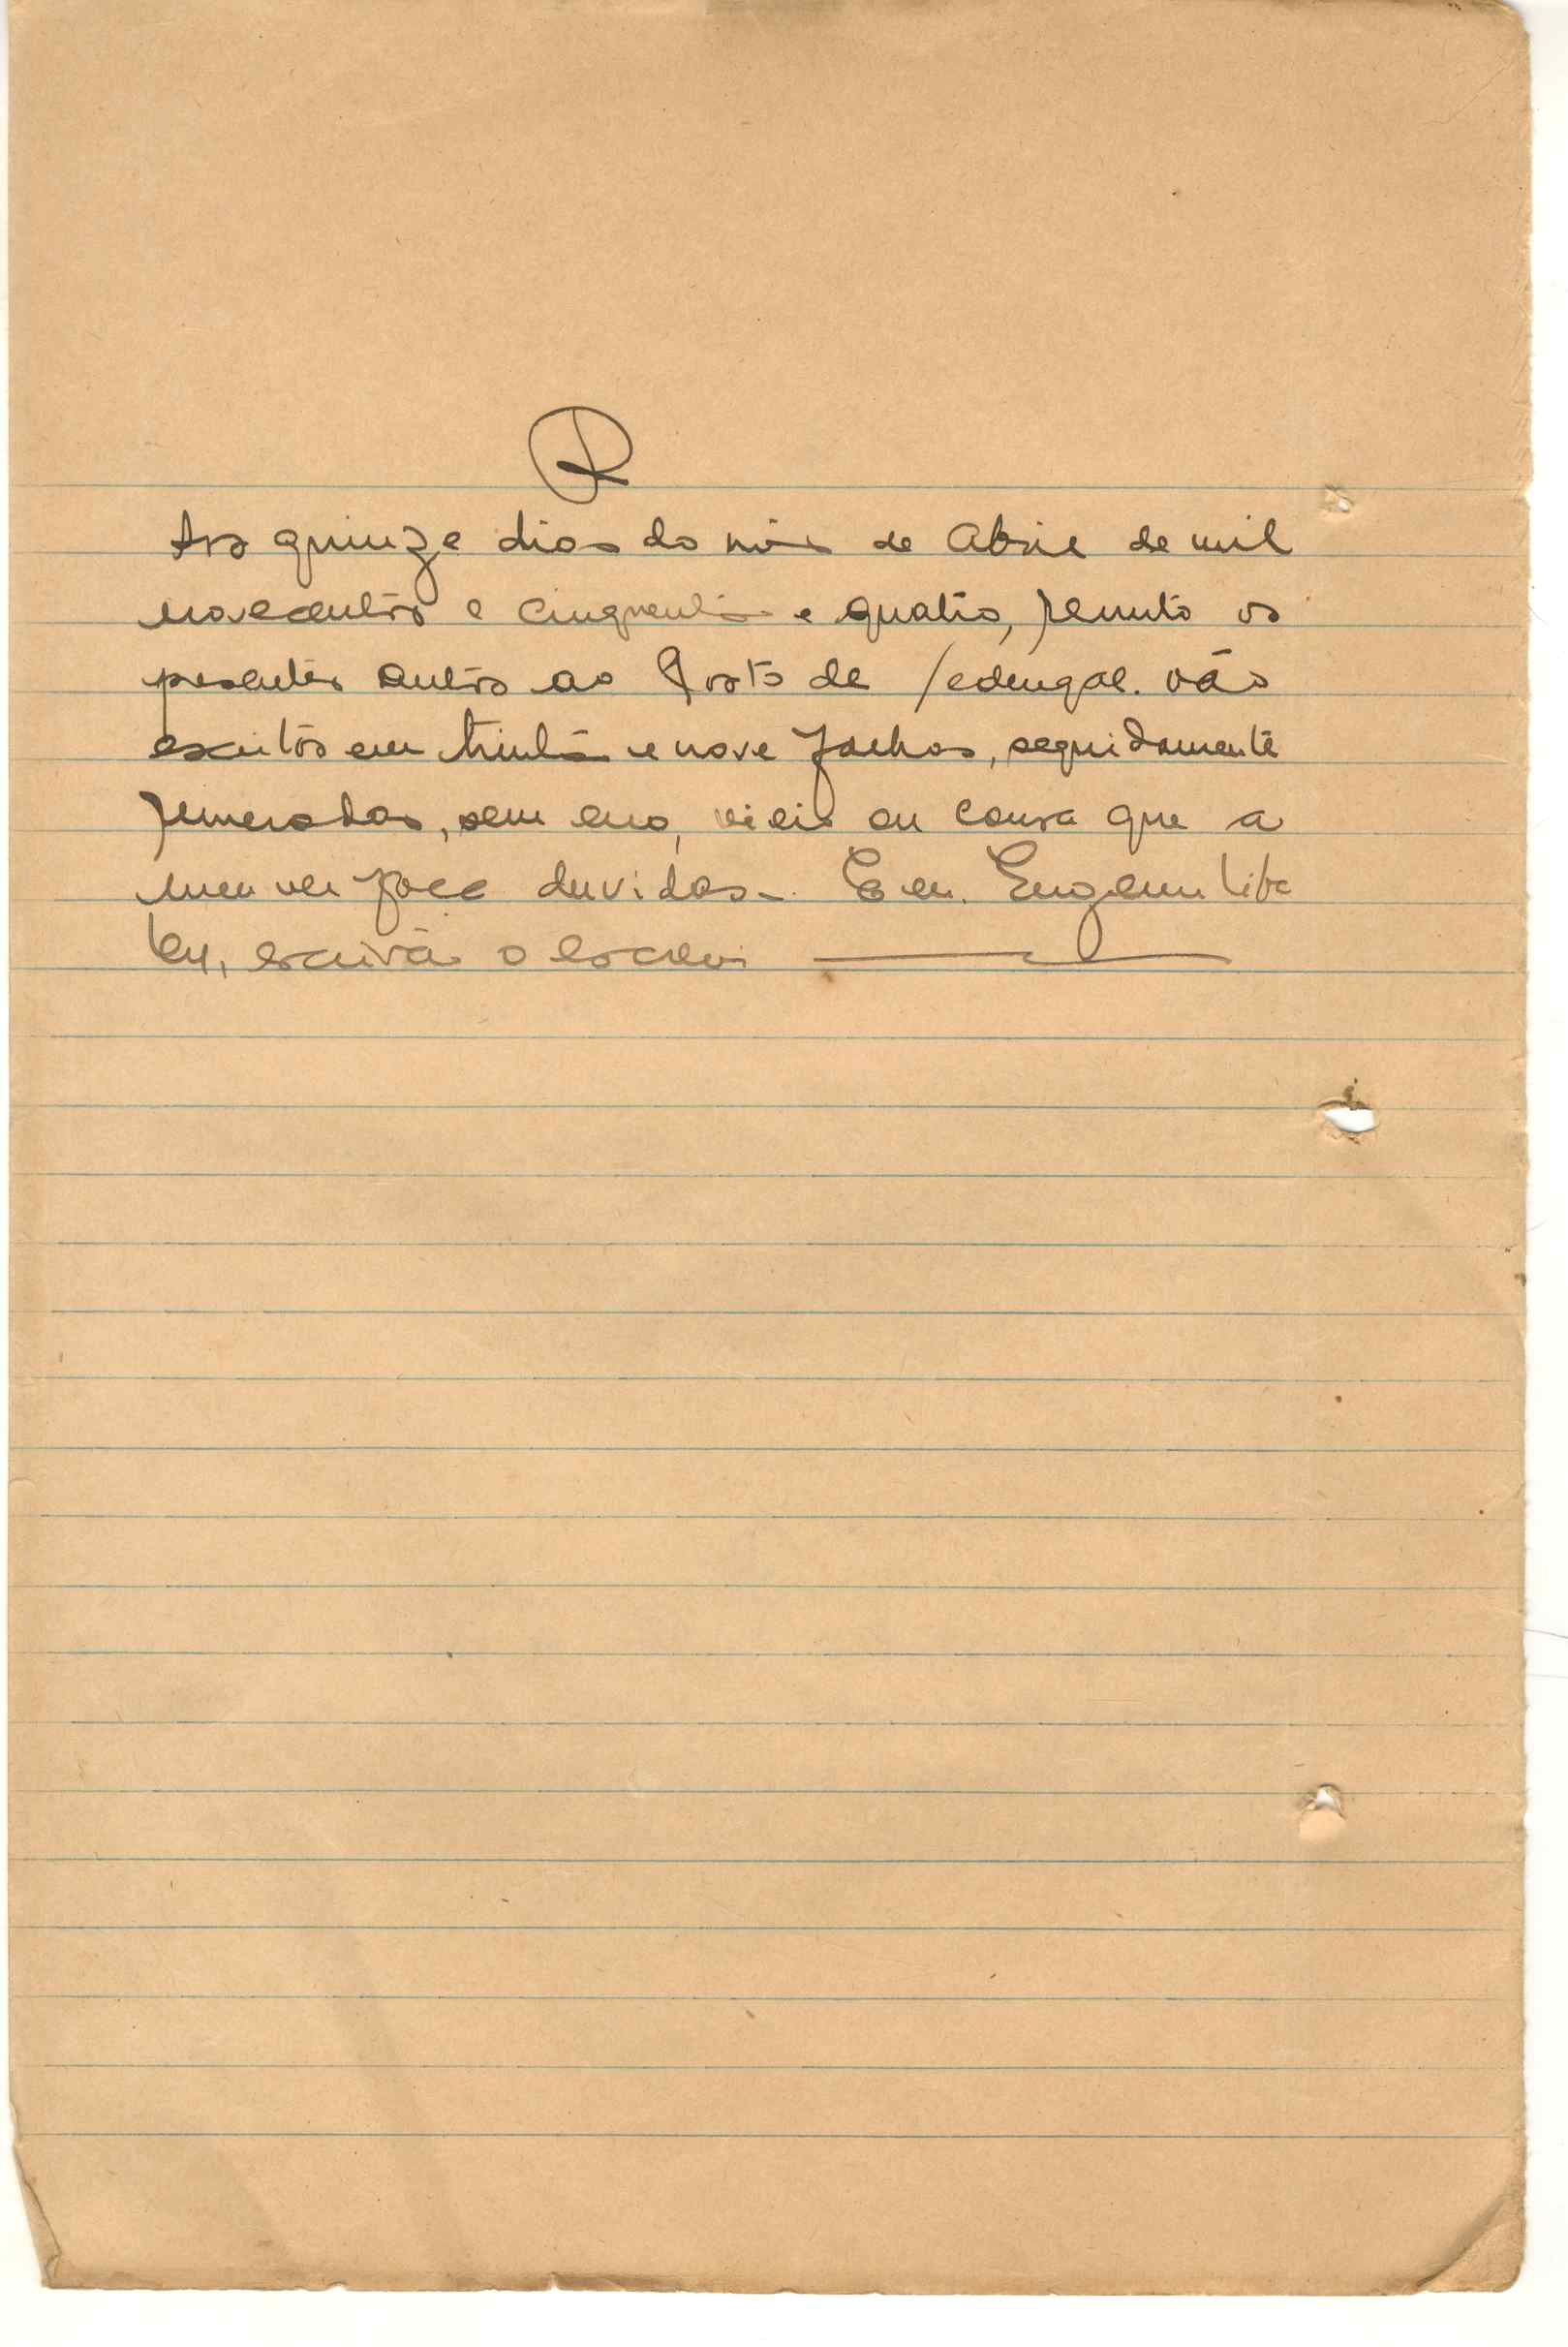 R
Aos quinze dias do mês de Abril de mil
novecentos e cinquenta e quatro, remeto os
presentes autos ao Posto de Sedengal. vão
escritos em trinta e nove folhas, seguidamente
numeradas, sem erro, vicio ou cousa que a
meu ver faça duvidas - E eu. Eugenio
escrivão o escrevi